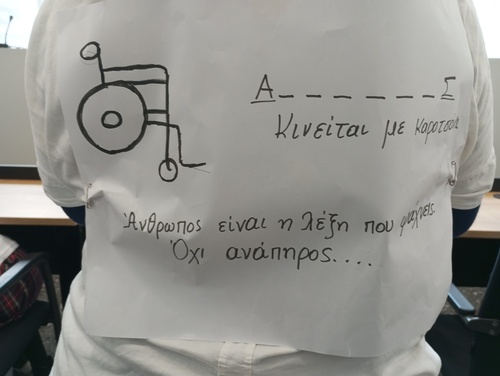 Α _ _ _ _ _ _ Σ
Κινείται με καροτσάκι
Άνθρωπος είναι η λέξη που ψάχνεις.
Όχι ανάπηρος....